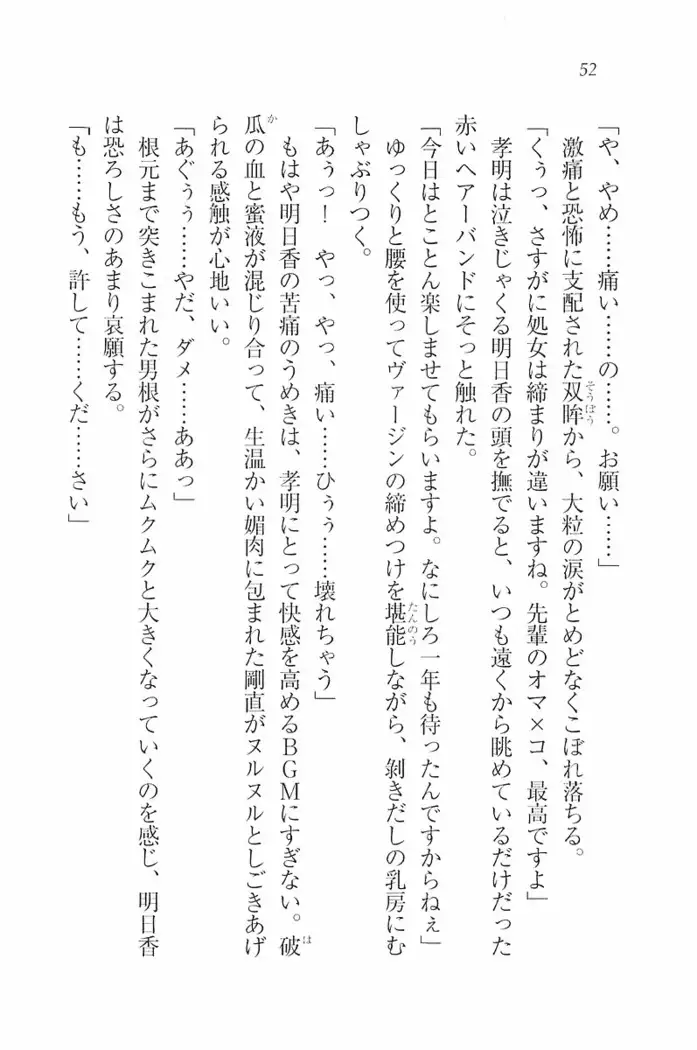 52
「や、やめ……痛い………の……。お願い……」
激痛と恐怖に支配された双眸から、大粒の涙がとめどなくこぼれ落ちる。
「くぅっ、さすがに処女は締まりが違いますね。先輩のオマ×コ、最高ですよ」
孝明は泣きじゃくる明日香の頭を撫でると、いつも遠くから眺めているだけだった
赤いヘアーバンドにそっと触れた。
「今日はとことん楽しませてもらいますよ。なにしろ一年も待ったんですからねぇ」
ゆっくりと腰を使ってヴァージンの締めつけを堪能しながら、剝きだしの乳房にむ
しゃぶりつく。
「あぅっ！　やっ、やっ、痛い……ひぅぅ……壊れちゃう」
もはや明日香の苦痛のうめきは、孝明にとって快感を高めるＢＧＭにすぎない。破
瓜の血と蜜液が混じり合って、生温かい媚肉に包まれた剛直がヌルヌルとしごきあげ
られる感触が心地いい。
「あぐぅぅ……やだ、ダメ……ああっ」
根元まで突きこまれた男根がさらにムクムクと大きくなっていくのを感じ、明日香
は恐ろしさのあまり哀願する。
「も……もう、許して……くだ……さい」